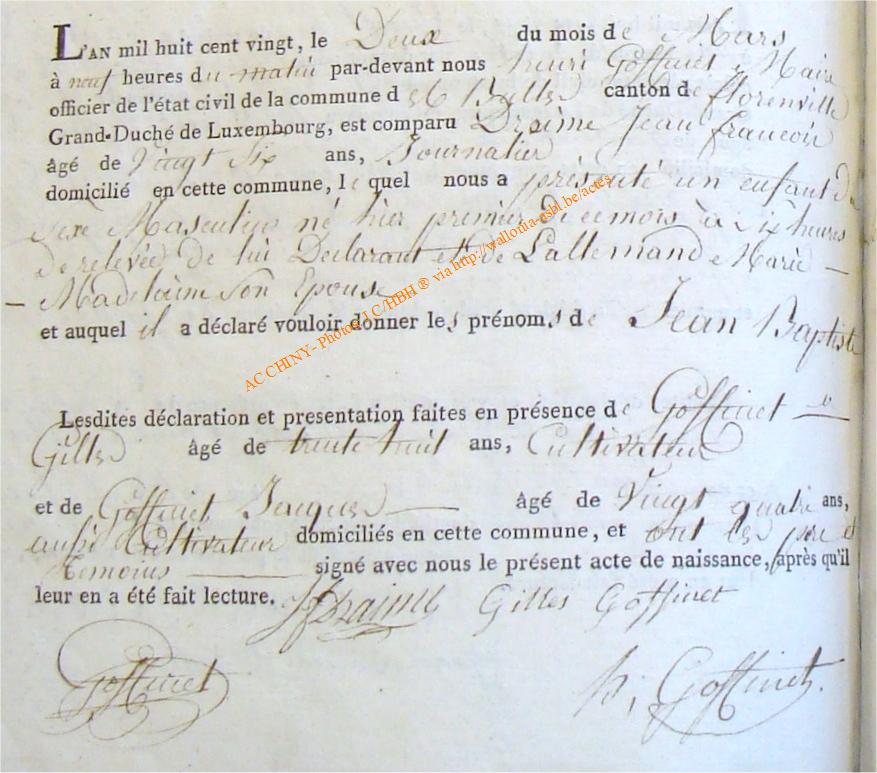 L'AN mil huit cent vingt, le Deux du mois de Mars
à neuf heures du matin par-devant nous henri Goffinet Maire
officier de l'état civil de la commune d es Bulles canton de florenville
Grand-Duché de Luxembourg, est comparu Draime Jean francois
âgé de Vingt Six ans, Journalier
domicilié en cette commune, le quel nous a présenté un enfant du
Sexe Masculin né hier premier di ce mois à Six heures
de relevée de lui Declarant et de Lallemand Marie
Madelaine Son Epouse
et auquel il a déclaré vouloir donner les prénoms de Jean Baptiste
AC CHINY - Photos J C/HBH ® via http://wallonia-asbl.be/actes
Lesdites déclaration et presentation faites en présence de Goffinet
Gilles âgé de trente huit ans, Cultivateur
et de Goffinet Jacques âgé de Vingt quatre ans,
aussi Cultivateur domiciliés en cette commune, et ont les père et
temoins signé avec nous le présent acte de naissance, après qu'il
leur en a été fait lecture. JfDraime Gilles Goffinet
Goffinet h; Goffinet.